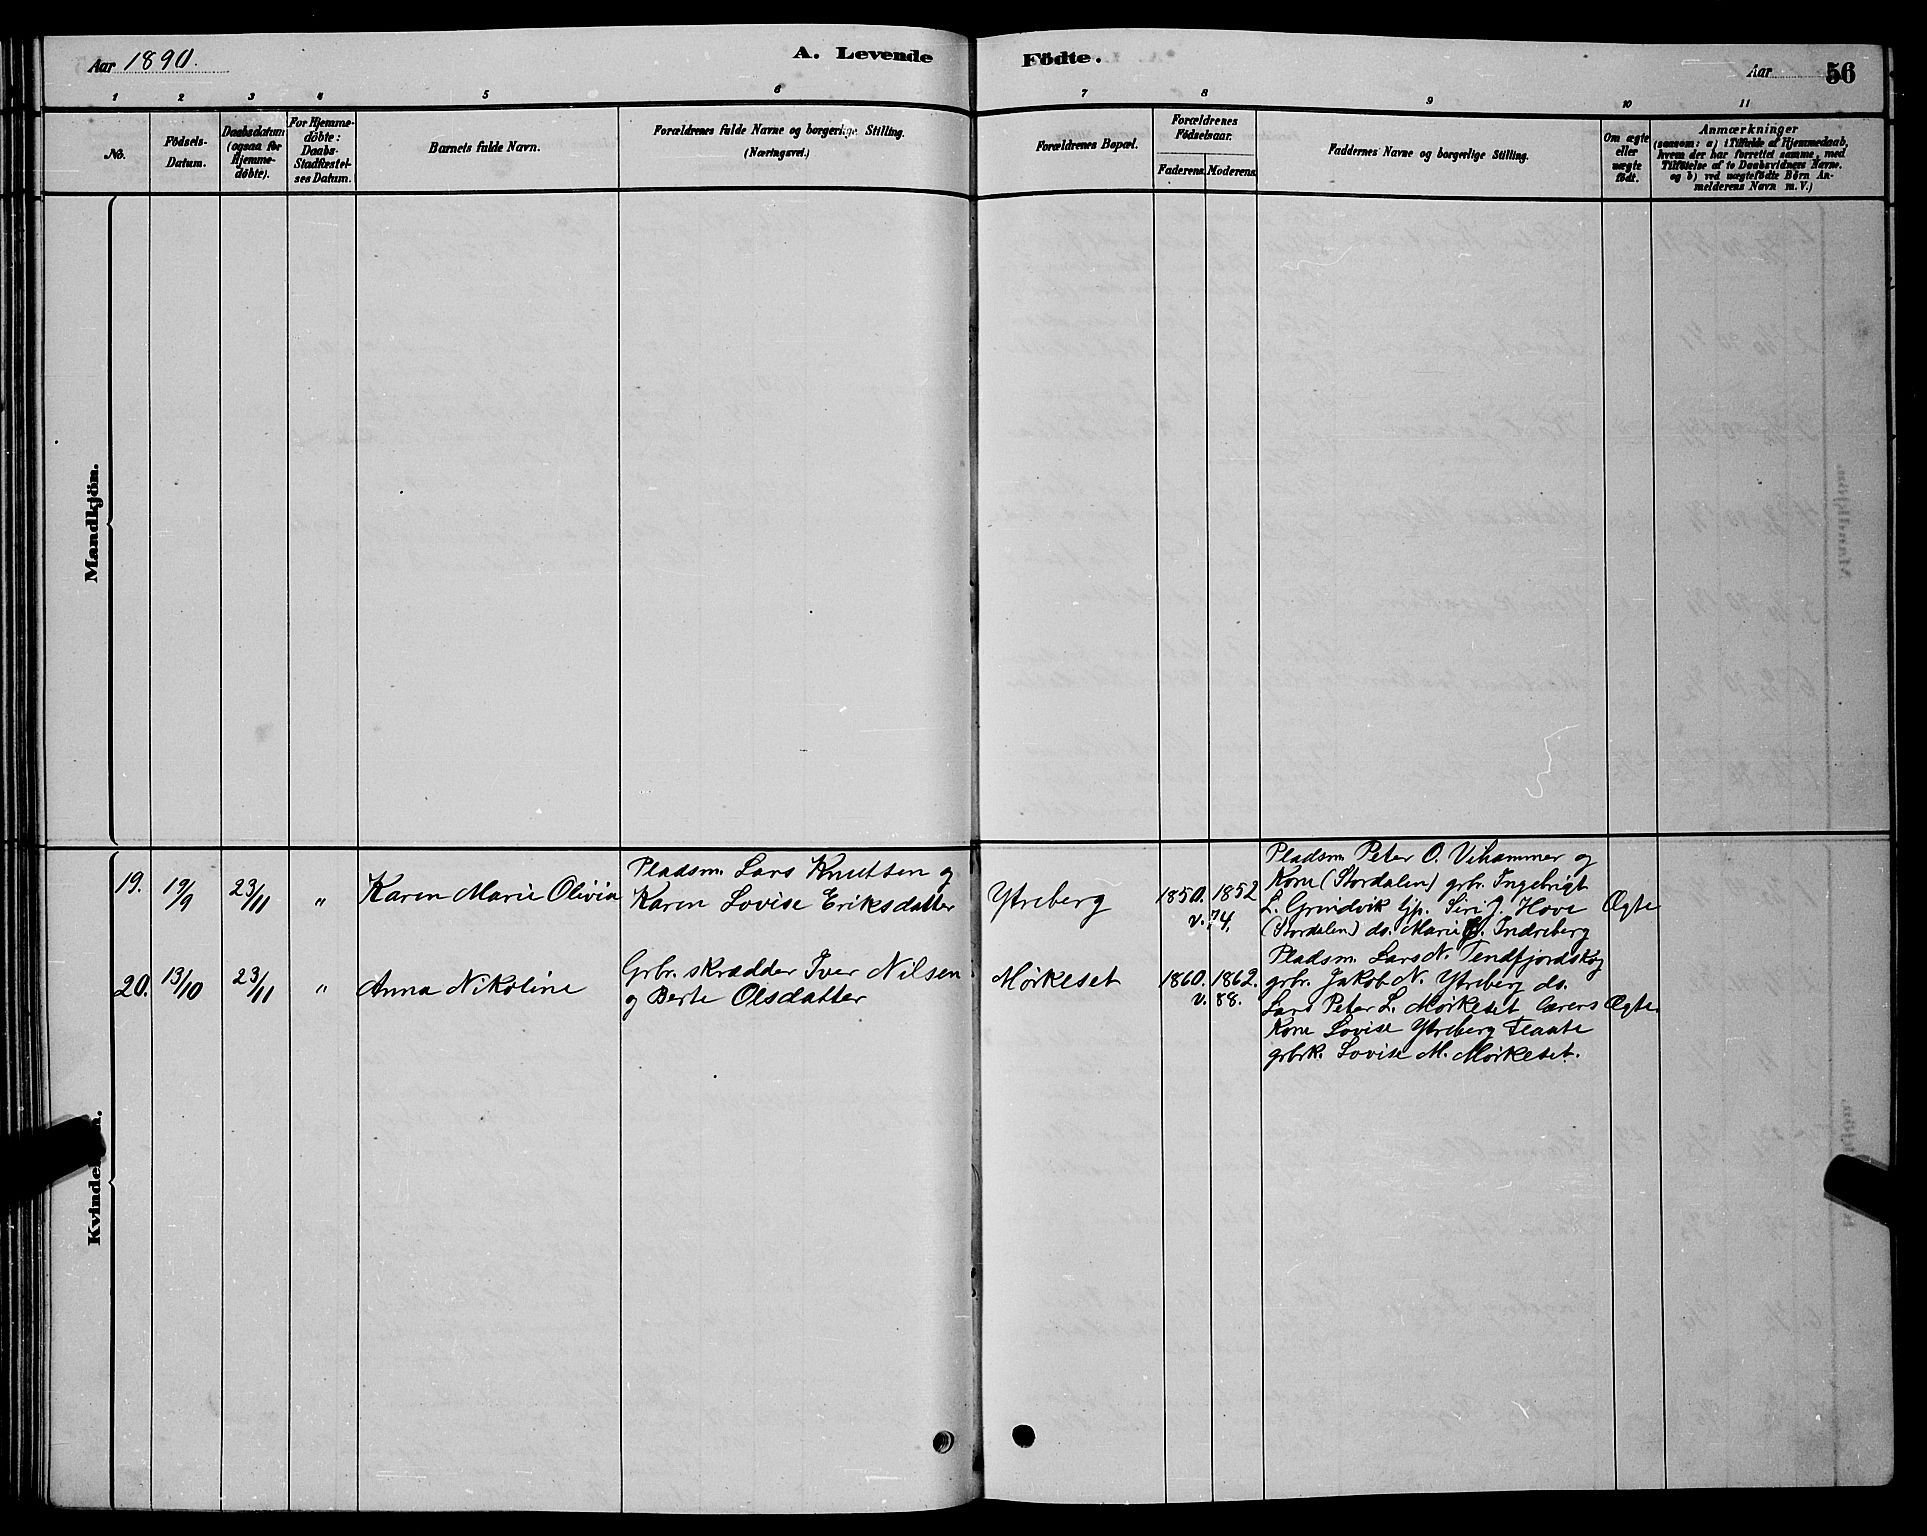 Aar 1890.
A. Levende Födte.
Aar 56
1 2 3 4 5 6 7 8 9 10 11
No.
Födsels-
Datum.
Daabsdatum
(ogsaa for
Hjemme-
döbte).
For Hjemme-
döbte:
Daabs-
Stadfæstel-
ses Datum.
Barnets fulde Navn.
Forældrenes fulde Navne og borgerlige Stilling.
(Næringsvei.)
Forældrenes Bopæl.
Forældrenes
Födselsaar.
Faderens. Moderens.
Faddernes Navne og borgerlige Stilling.
Om ægte
eller
uægte
födt.
Anmærkninger
(saasom: a) i Tilfælde af Hjemmedaab,
hvem der har forrettet samme, med
Tilföielse af to Daabsvidners Navne.
og b) ved uægtefödte Börn An-
melderens Navn m. V.)
Mandkjön.
19.
19/9
23/11
"
Karen Marie Olivia
Pladsm. Lars Knutsen og
Karen Lovise Eriksdatter
Ytreberg
1850. 1852
v. 74.
Pladsm. Peter O. Vihammer og
Kone (Stordalen) grbr. Ingebrigt
L. Grindvik Gp. Siri J. Hove
(Stordalen) ds. Marie Indreberg
Ægte
20.
13/10
23/11
"
Anna Nikoline
Grbr. skrædder Iver Nilsen
og Berte Olsdatter
Mørkeset
1860. 1862.
v. 88.
Pladsm. Lars N. Tendfjordskog
grbr. Jakob N. Ytreberg ds.
Lars Peter L. Mørkeset Lærers
Kone Lovise Ytreberg Flaate
grbrk. Lovise M. Mørkeset.
Ægte